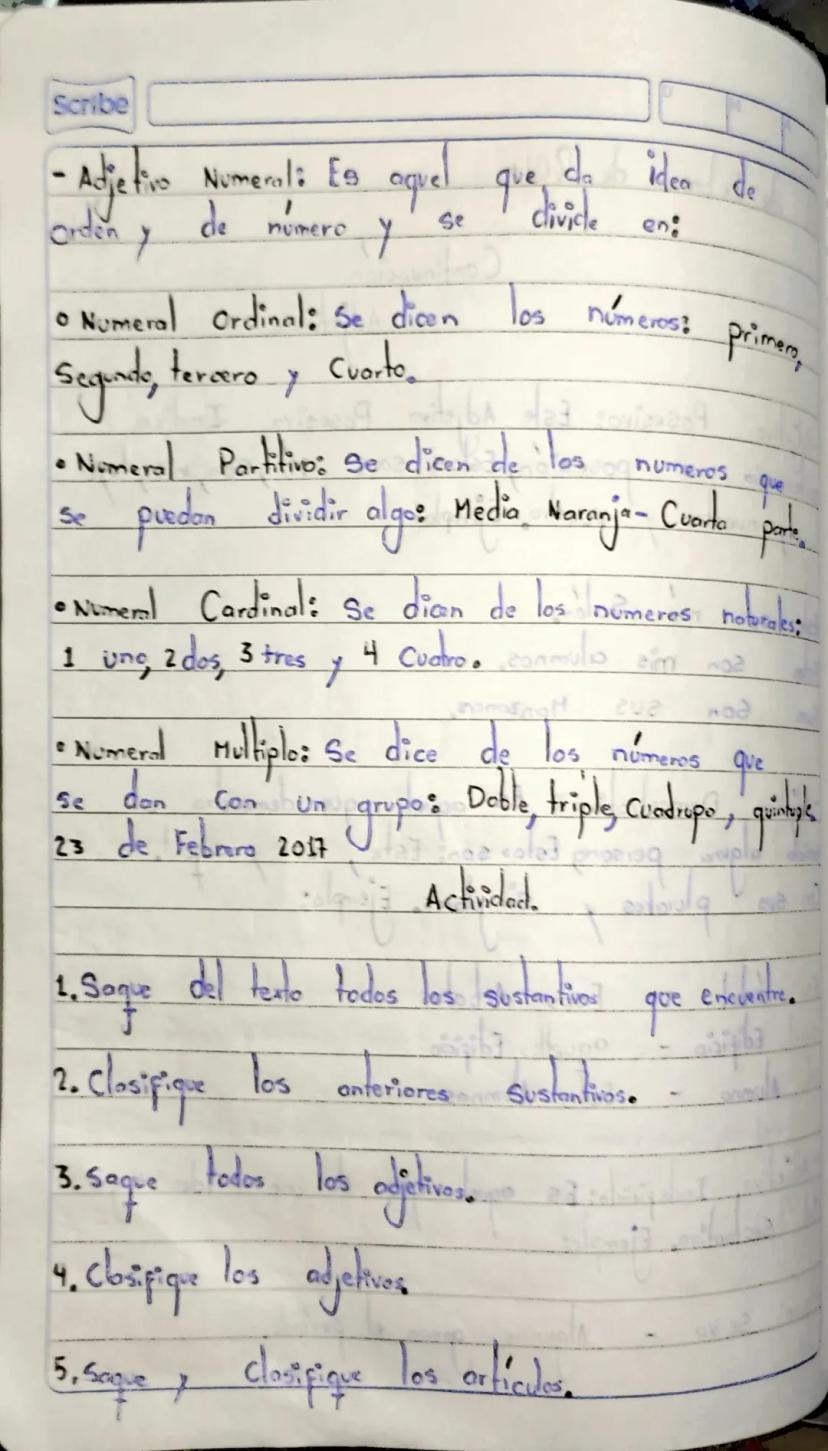 Scribe
- Adjetivo Numeral: Es aquel que da idea de
orden y de número y se divide en:
o Numeral Ordinal: Se dicen los números: primero,
Segundo, tercero y Cuarto.
• Numeral Partitivo: Se dicen de los numeros que
se puedan dividir algo: Media Naranja - Cuarta parte.
• Numeral Cardinal: Se dicen de los números naturales:
1 uno, 2 dos, 3 tres y 4 Cuatro.
• Numeral Multiplo: Se dice de los números que
se dan con un grupo: Doble, triple, Cuadrupo, quintuple
23 de Febrero 2017
Actividad.
1. Saque del texto todos los sustantivos que encuentre.
2. Clasifique los anteriores sustantivos.
3. Saque todos los adjetivos.
4. Clasifique los adjetivos.
5. Saque y clasifique los artículos.